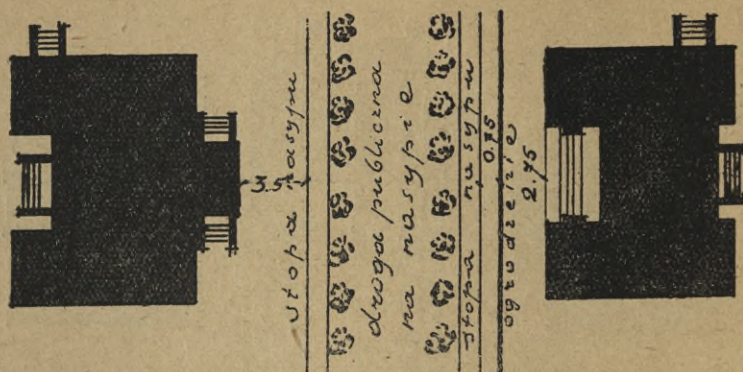 3.5
stopa nasypu
droga publiczna
na nasypie
stopa nasypu
0.75
ogrodzenie
2.75